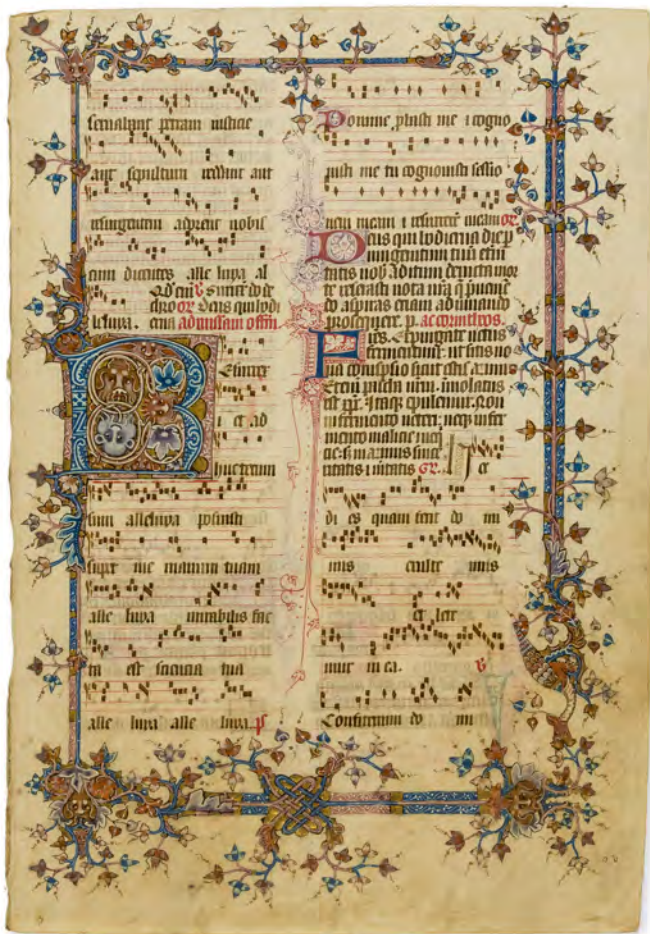 seruabant petram iusticie
aut sepultum reddant aut
resurgentem adorent nobis
cum dicentes alle luya al
leluya.
ad missam offm
Esurrex
i et ad
huc tecum
sum alleluya posuisti
super me manum tuam
alle luya mirabilis fac
ta est scientia tua
alle luya alle luya. ps
Domine probasti me i cogno
uisti me tu cognouisti sessio
nem meam i resurrect meam or
Deus qui hodierna die p
unigenitum tuu etni
tatis nob aditum deuicta mor
te reserasti uota nra q pueniē
do aspiras etiam adiuuando
prosequere. p. ad corintheos.
Fres. Expurgate uetus
fermentum ut sitis no
ua conspersio sicut estis azimi
Eteni pascha nrm imolatus
est xpc. Itaq epulemur. Non
in fermento ueteri neq in fer
mento malicie
in azimis since
ritatis i uitatis Gr. ec
di es quam fecit do mi
nus exulte mus
et lete
mur in ea. V
Confitemini do mi